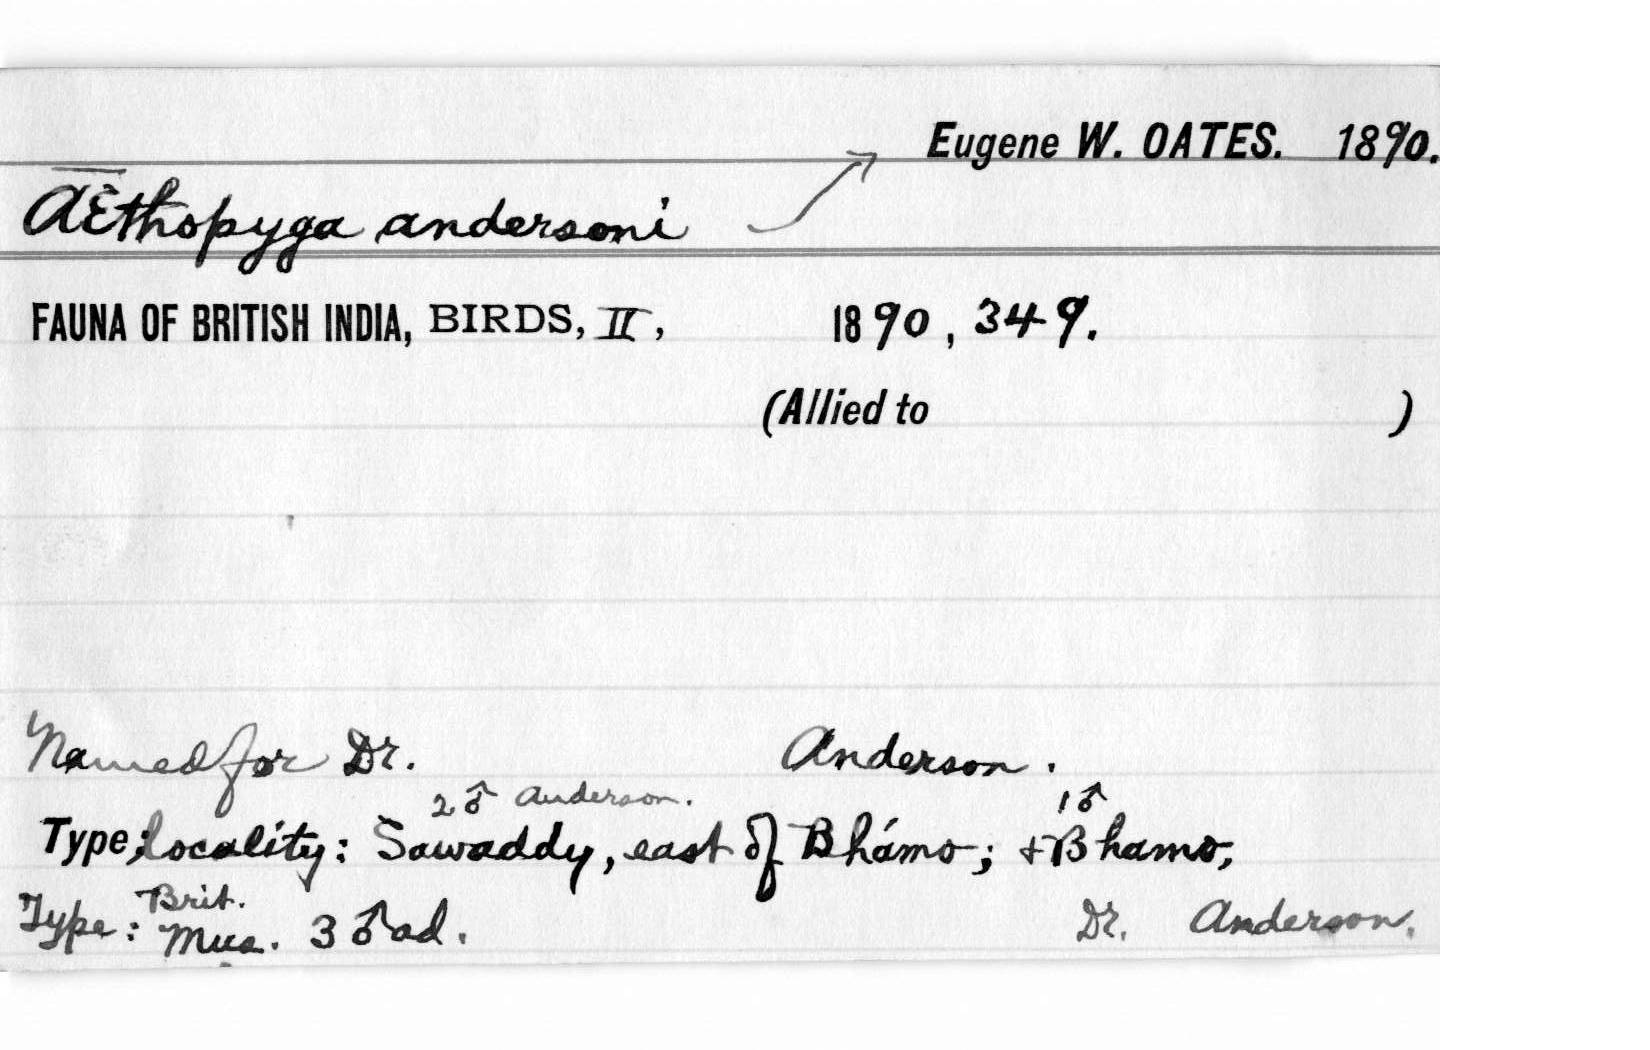 Eugene W. OATES. 1890.
Aethopyga andersoni
FAUNA OF BRITISH INDIA, BIRDS, II, 1890, 349.
(Allied to )
Named for Dr. Anderson.
2♂ Anderson. 1♂
Type; locality: Sawaddy, east of Bhámo; + Bhamo,
Type: Brit. Mus. 3 ♂ ad. Dr. Anderson.